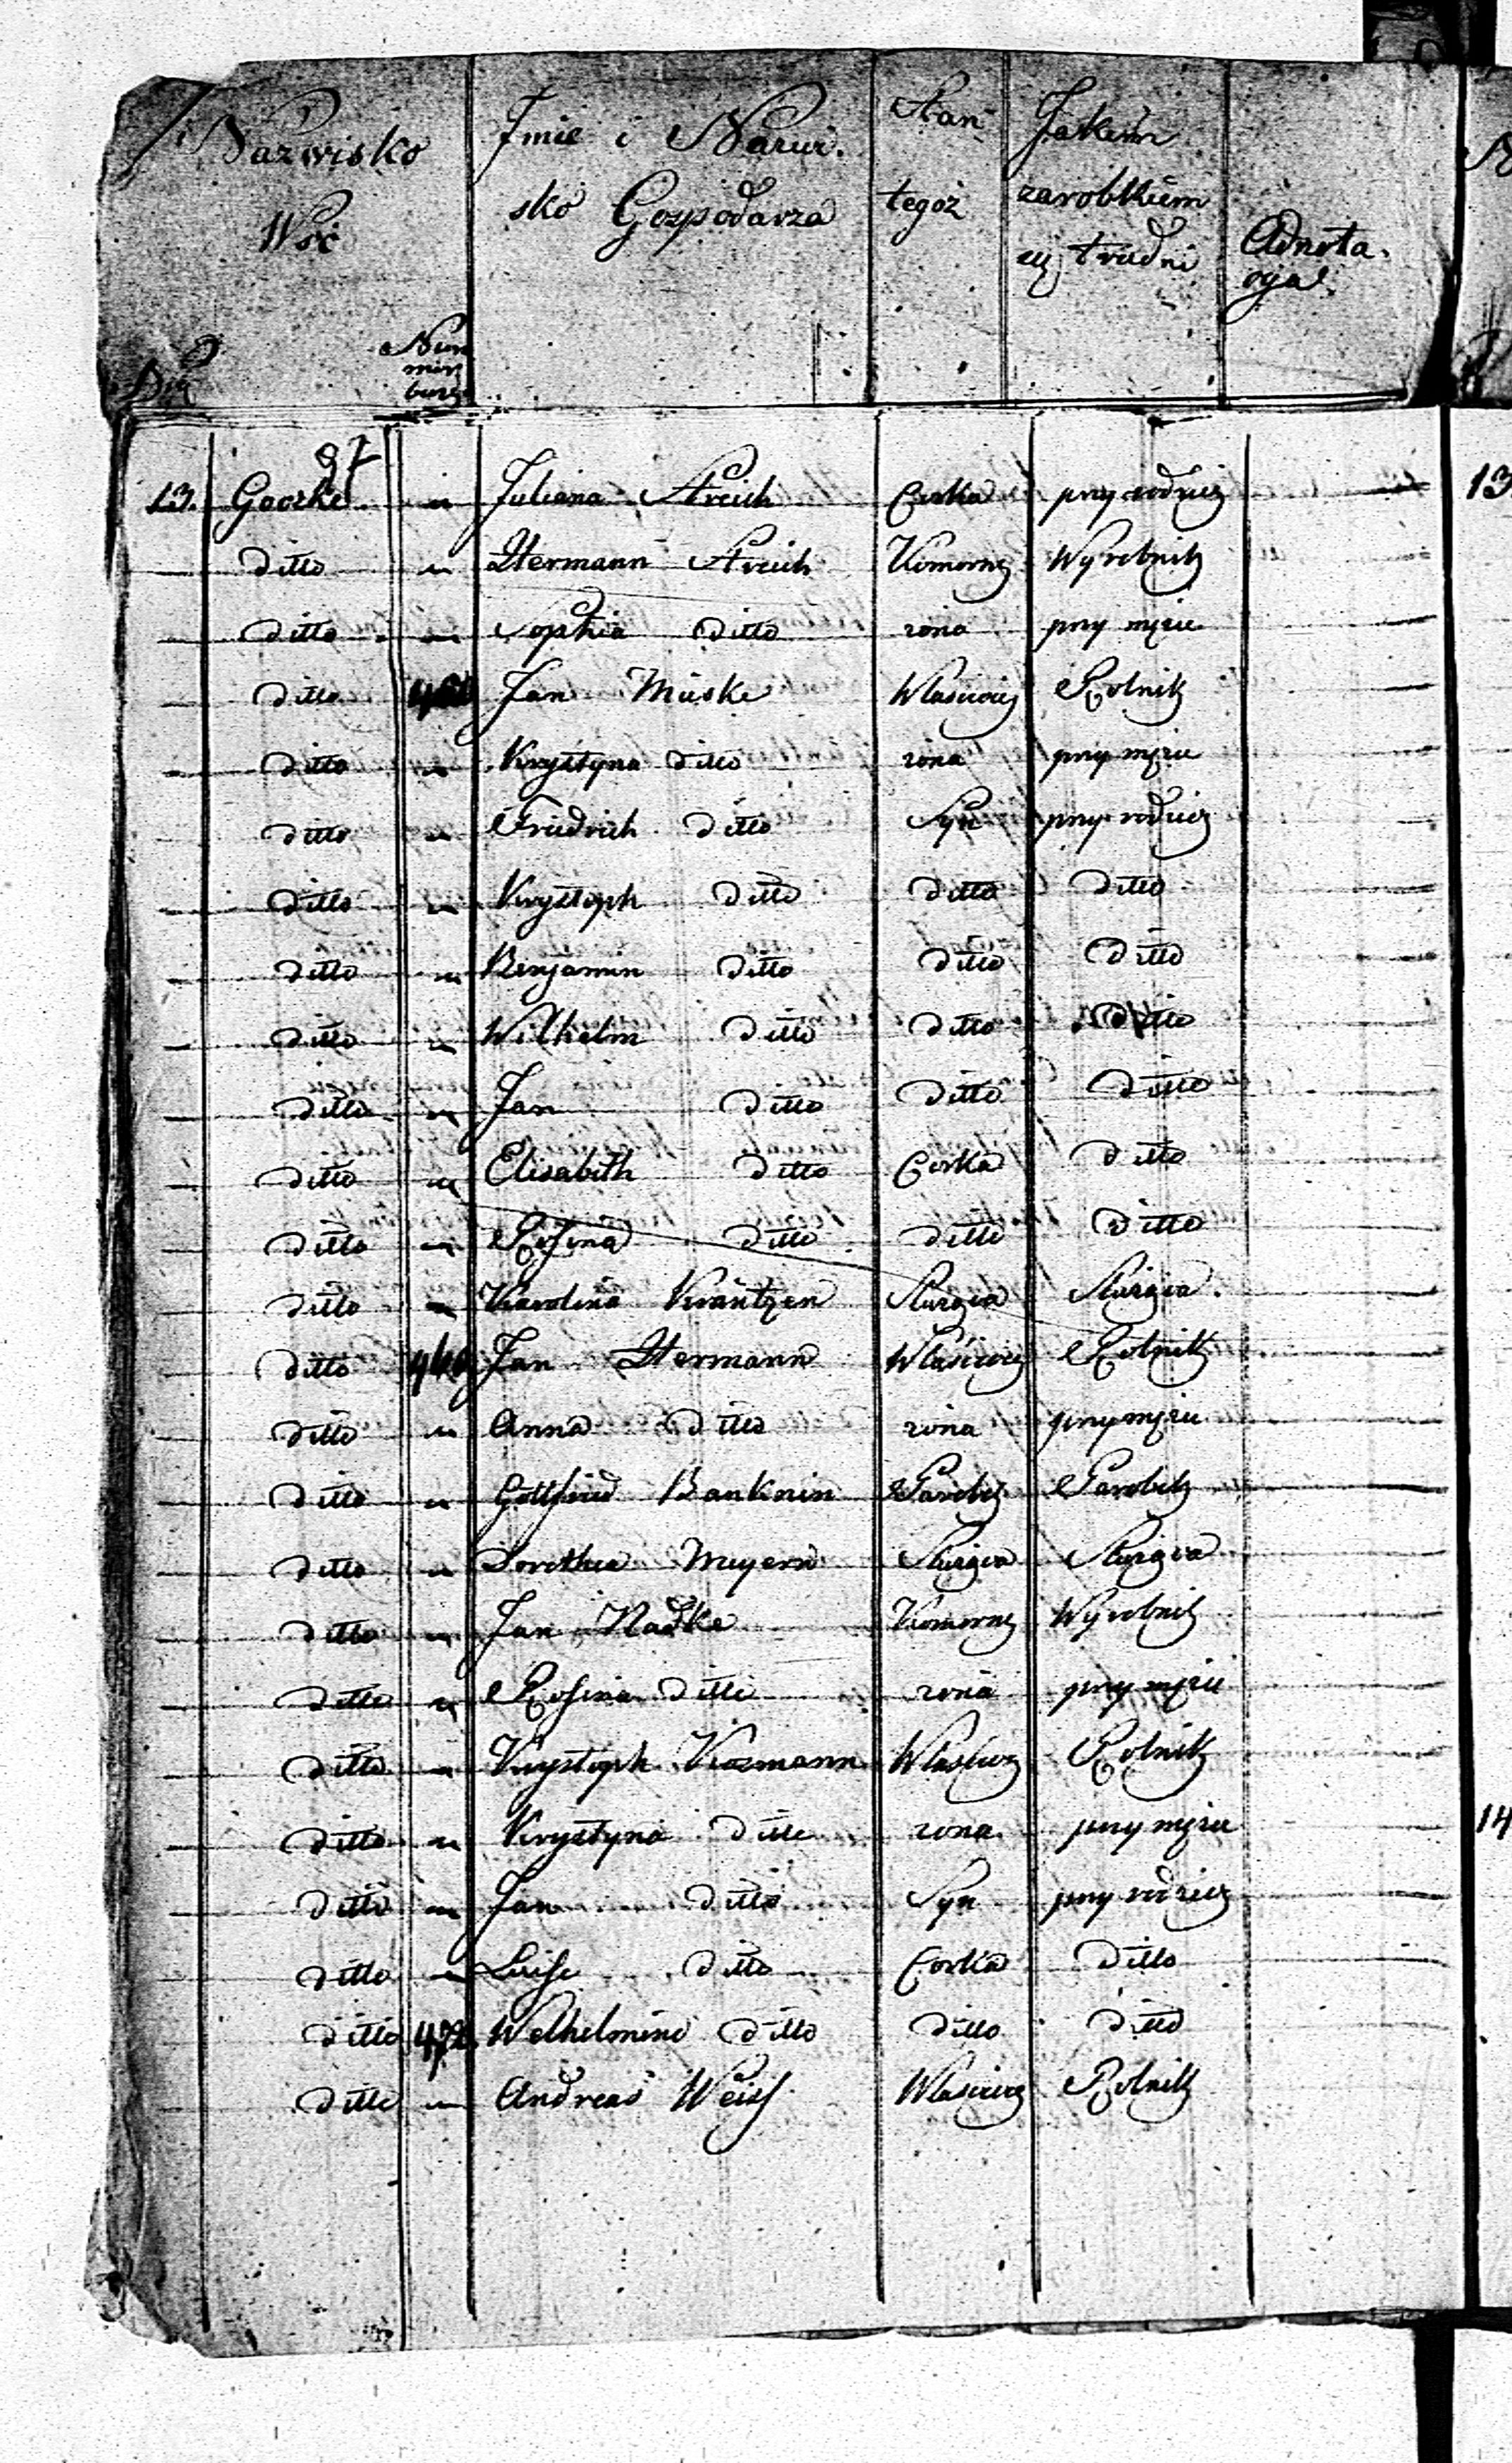 Nazwisko Wsi
Imie i Nazwisko Gospodarza
Stan tegoż
Jakiem zarobkiem się trudni
Adnotacya
97
13. Goerke " Juliana Streich Corka przy rodzicz
ditto " Hermann Streich Komorn Wyrobnik
ditto " Sophia ditto żona przy mężu
ditto Jan Muske Własciciel Rolnik
ditto " Krystyna ditto żona przy mężu
ditto " Friedrich ditto Syn przy rodzicz
ditto " Krystoph ditto ditto ditto
ditto " Benjamin ditto ditto ditto
ditto " Wilhelm ditto ditto ditto
ditto " Jan ditto ditto ditto
ditto " Elisabeth ditto Corka ditto
ditto " Rosina ditto ditto ditto
ditto " Karolina Krantzen Służąca Służąca
ditto Jan Hermann Własciciel Rolnik
ditto " Anna ditto żona przy mężu
ditto " Gottfried Banknin Parobek Parobek
ditto " Dorothea Meyern Służąca Służąca
ditto " Jan Radke Komorn Wyrobnik
ditto " Rosina ditto żona przy mężu
ditto " Krystoph Kozmann Własciciel Rolnik
ditto " Krystyna ditto żona przy mężu
ditto " Jan ditto Syn przy rodzicz
ditto " Luise ditto Corka ditto
ditto 472 Welhelmine ditto ditto ditto
ditto " Andreas Weiss Własciciel Rolnik
13
14